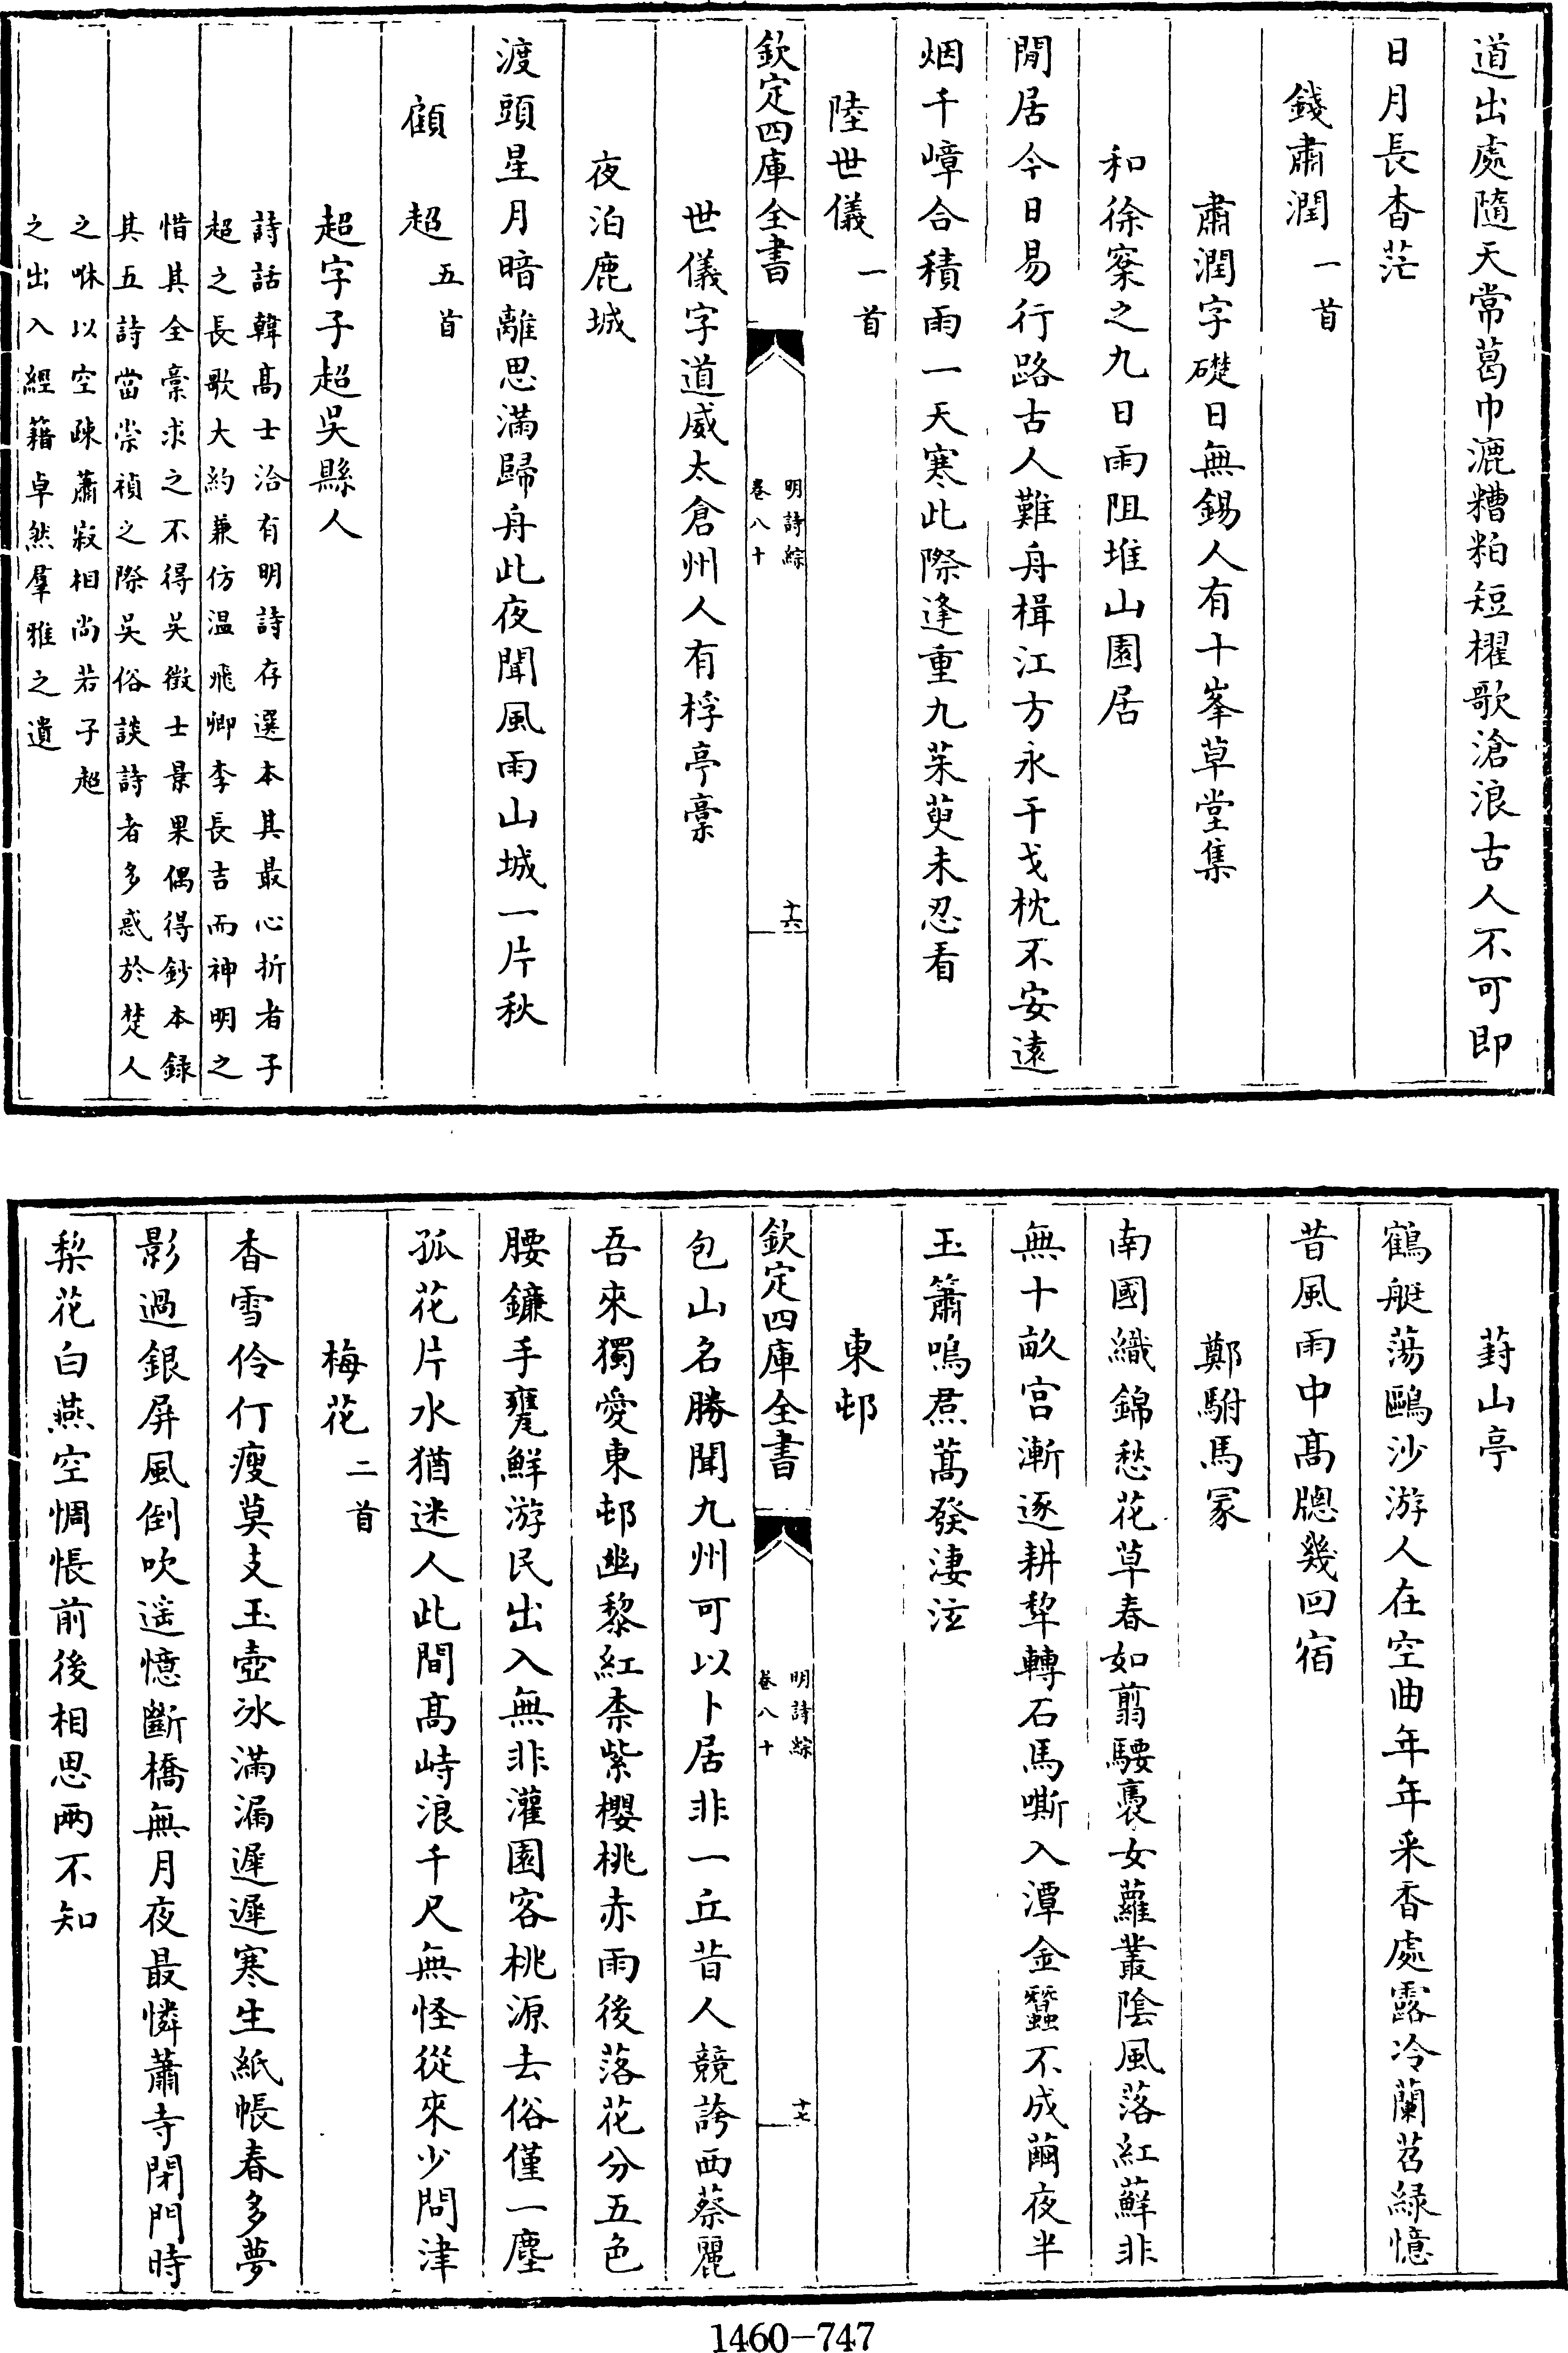 道出處隨天常葛巾漉糟粕短櫂歌滄浪古人不可卽
日月長杳茫
錢肅潤一首
肅潤字礎日無錫人有十峯草堂集
和徐寀之九日雨阻堆山園居
閒居今日易行路古人難舟楫江方永干戈枕不安遠
烟千嶂合積雨一天寒此際逢重九茱萸未忍看
陸世儀一首
欽定四庫全書
明詩綜
卷八十
十六
世儀字道威太倉州人有桴亭稾
夜泊鹿城
渡頭星月暗離思滿歸舟此夜聞風雨山城一片秋
顧超五首
超字子超吳縣人
詩話韓髙士洽有明詩存選本其最心折者子
超之長歌大約兼仿温飛卿李長吉而神明之
惜其全稾求之不得吳徵士景果偶得鈔本録
其五詩當崇禎之際吳俗談詩者多惑於楚人
之咻以空疎蕭寂相尚若子超
之出入經籍卓然羣雅之遺
葑山亭
鶴艇蕩鷗沙游人在空曲年年采香處露冷蘭苕緑憶
昔風雨中髙牕幾回宿
鄭駙馬冢
南國織錦愁花草春如翦騕褭女蘿叢陰風落紅蘚非
無十畝宫漸逐耕犂轉石馬嘶入潭金蠶不成繭夜半
玉簫嗚焄蒿發淒泫
東邨
欽定四庫全書
明詩綜
卷八十
十七
包山名勝聞九州可以卜居非一丘昔人競誇西蔡麗
吾來獨愛東邨幽黎紅柰紫櫻桃赤雨後落花分五色
腰鎌手甕鮮游民出入無非灌園客桃源去俗僅一塵
孤花片水猶迷人此間髙峙浪千尺無怪從來少問津
梅花二首
香雪伶仃瘦莫支玉壺冰滿漏遲遲寒生紙帳春多夢
影過銀屏風倒吹遥憶斷橋無月夜最憐蕭寺閉門時
梨花白燕空惆悵前後相思兩不知
1460-747